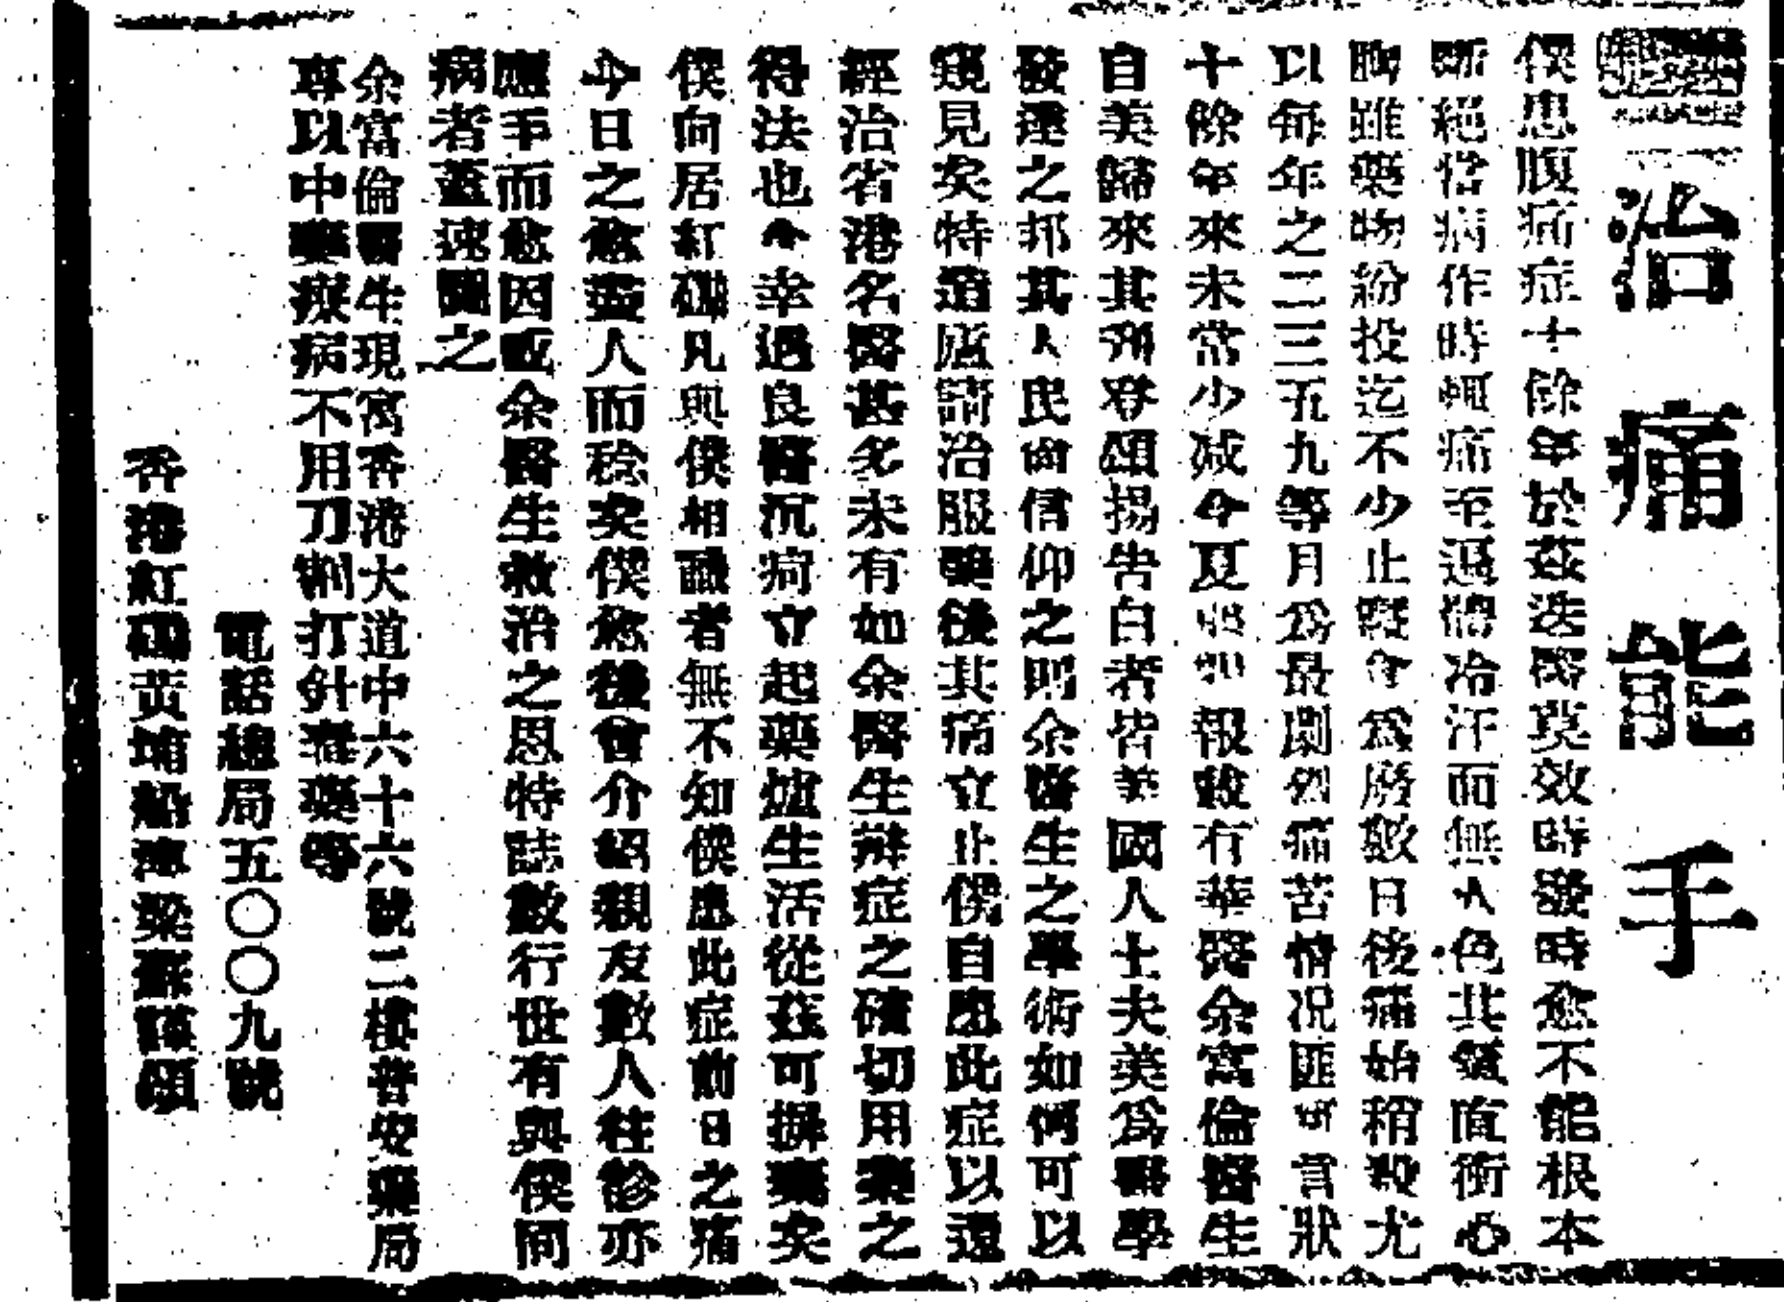 治痛能手
僕患腹痛症十餘年於茲迭醫莫效時發時愈不能根本
斷絕當病作時輒痛至遍體冷汗面無人色其氣直衝心
胸雖藥物紛投迄不少止竟會為廢數日後痛始稍殺尤
以每年之二三五九等月為最劇烈痛苦情况匪可言狀
十餘年來未常少减今夏 報載有華醫余富倫醫生
自美歸來其列登頌揚告白者皆美國人士夫美為醫學
發達之邦其人民而信仰之則余醫生之學術如何可以
窺見矣特造廬請治服藥後其痛立止僕自患此症以還
經治省港名醫甚多未有如余醫生辨症之確切用藥之
得法也今幸遇良醫沉疴立起藥爐生活從茲可摒棄矣
僕向居紅磡凡與僕相識者無不知僕患此症前日之痛
今日之愈盡人而稔矣僕愈後曾介紹親友數人往診亦
應手而愈因感余醫生救治之恩特誌數行世有與僕同
病者蓋速醫之
余富倫醫生現寓香港大道中六十六號二樓普安藥局
專以中藥療病不用刀割打針毒藥等
電話總局五〇〇九號
香港紅磡黃埔船澳梁蘇謹頌